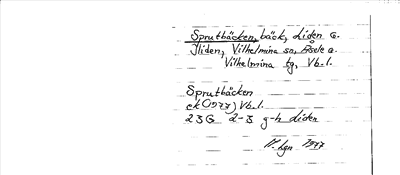 Sprutbäcken, bäck, Liden G.
Iliden, Vilhelmina sn, Åsele a.
Vilhelmina tg, Vb.l.
Sprutbäcken
ek (1977) Vb.l.
23G 2-3 g-h Liden
1977